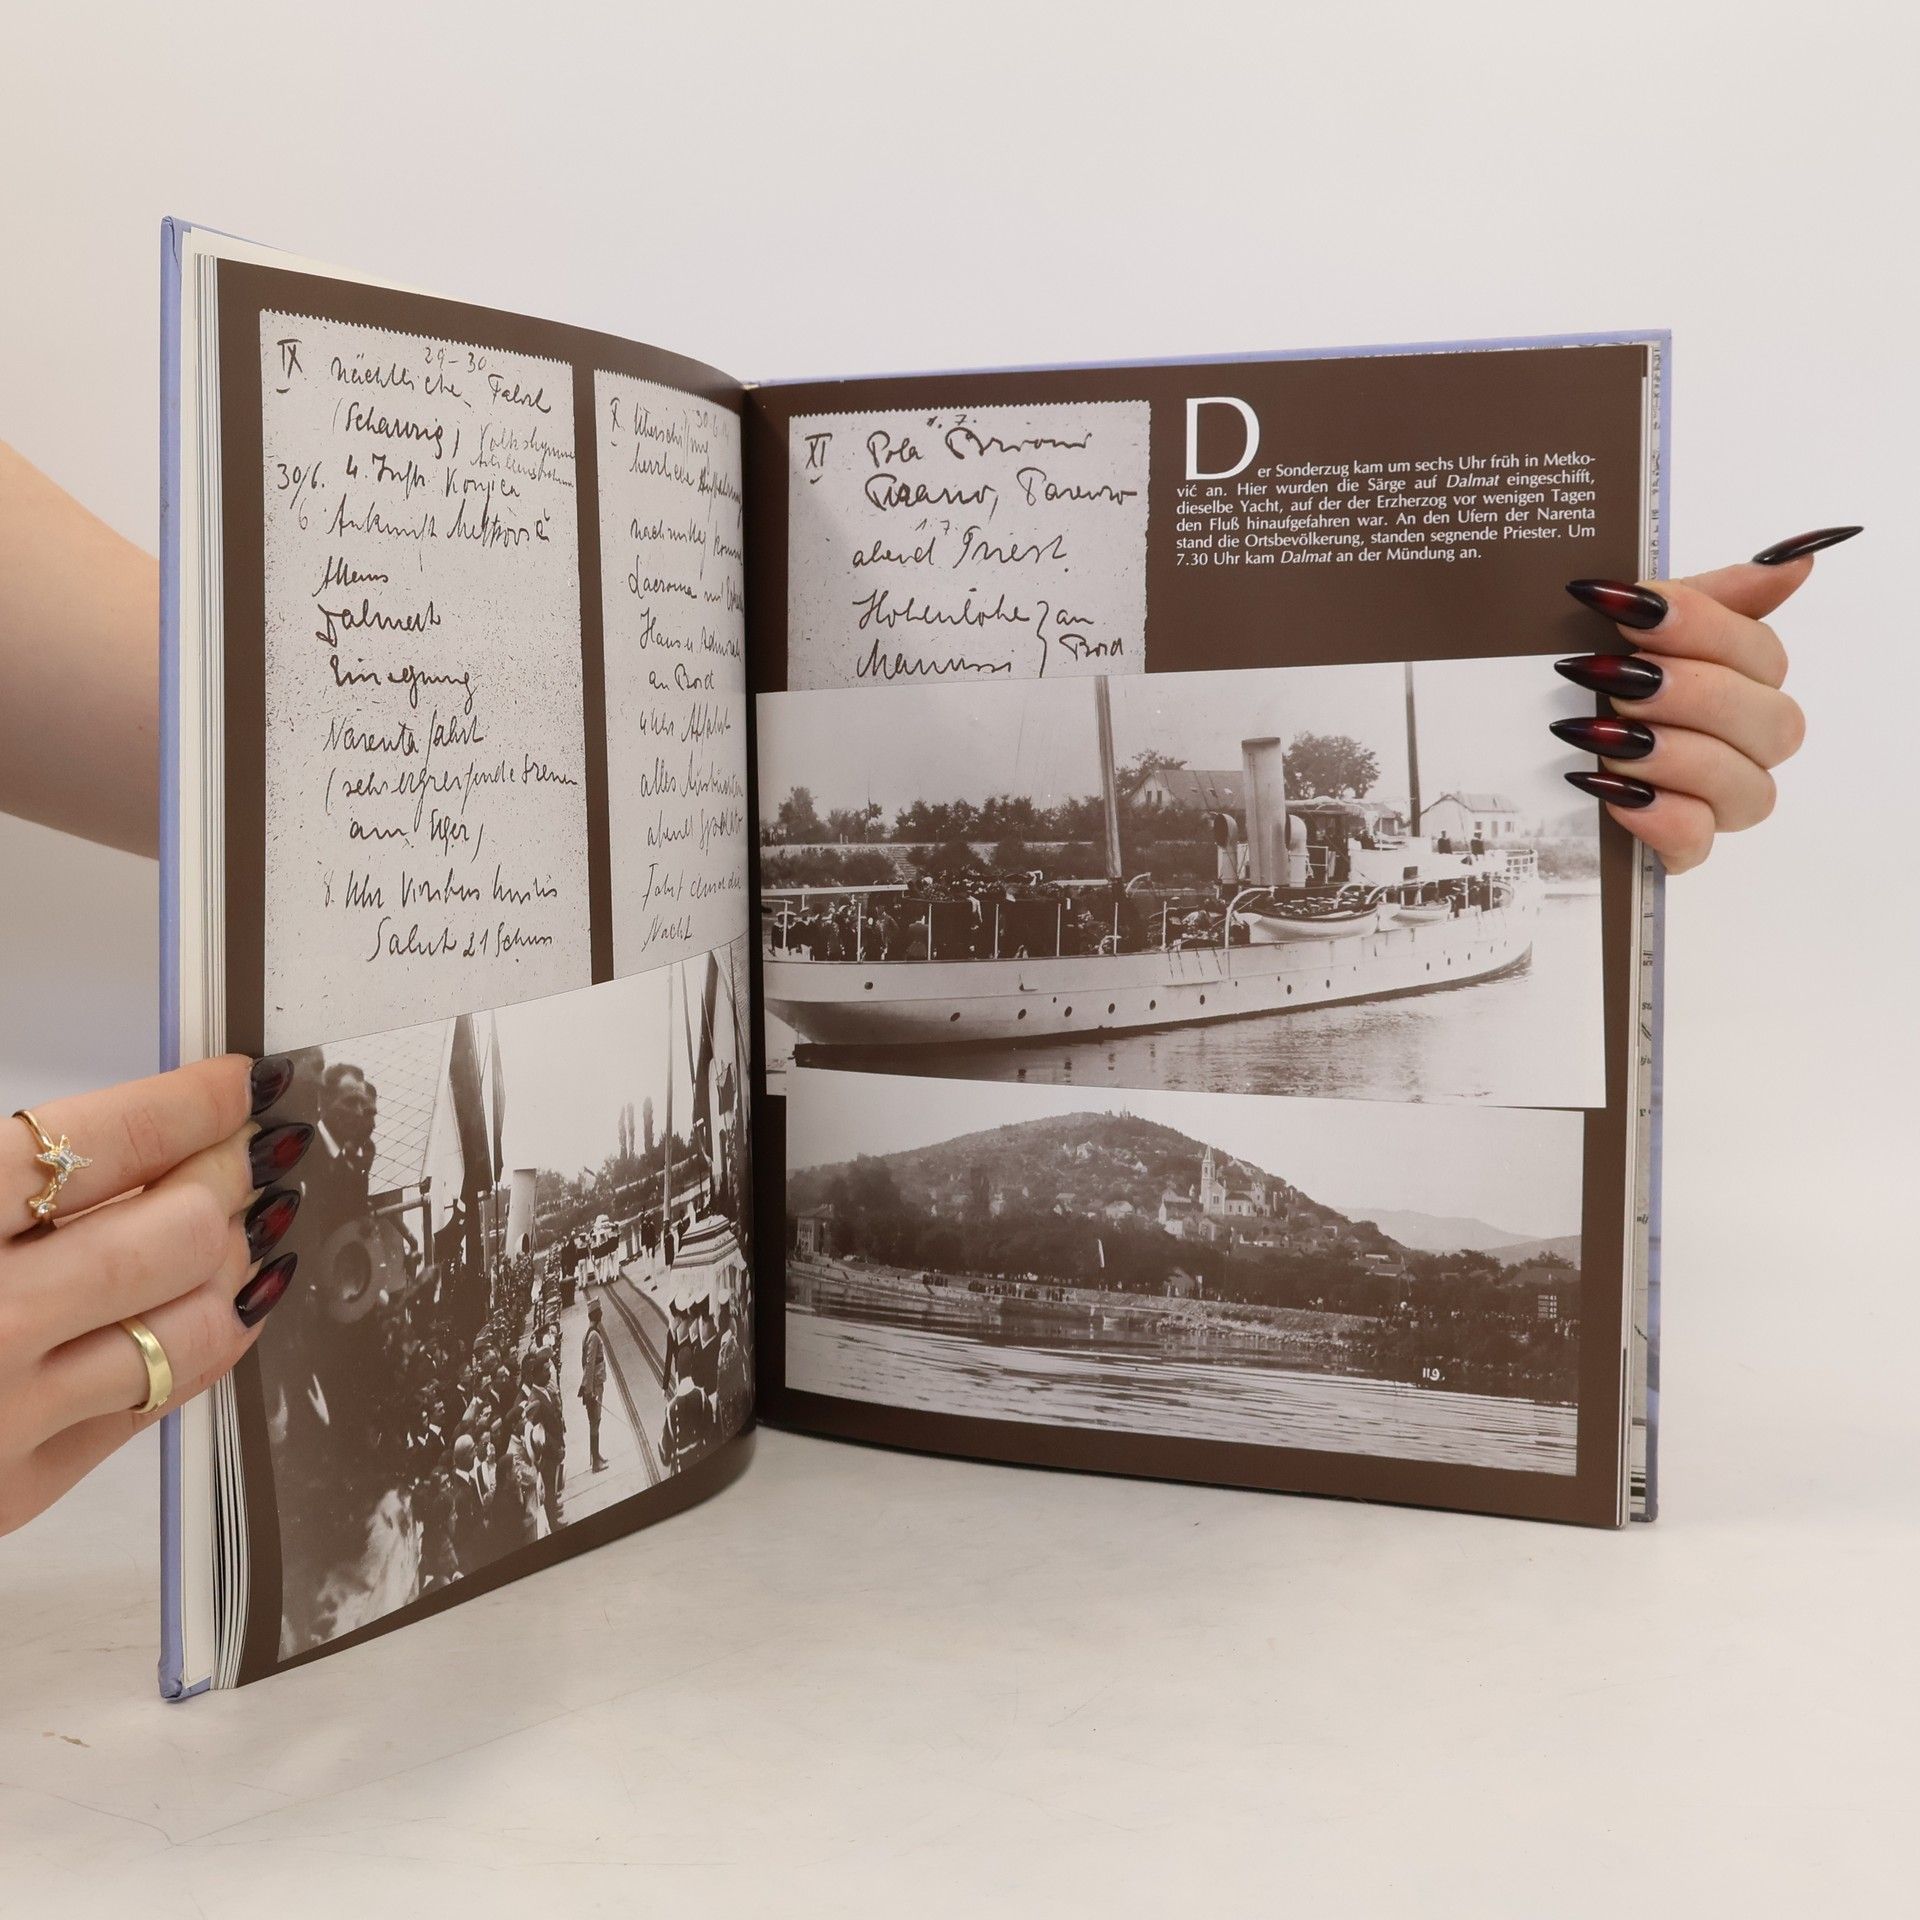 IX. 29–30.
Nächtliche Fahrt
(Schaurig) Volkshymne
30/6. 4. Inftr. Konjica
6 Ankunft Metković
Allems
Dalmat
Einsegnung
Narenta fahrt
(sehr ergreifende Szenen
am Ufer)
8. Uhr Viribus Unitis
Salut 21 Schuss
X. 30.6.
herrliche
nachmittag
Lacroma und
Haus u Admiral
an Bord
Uhr Abfahrt
alles
abend Spalato
Fahrt durch die
Nacht
XI 1. 7.
Pola Brioni
Pirano, Parenzo
1 7.
abend Triest.
Hohenlohe } an
Manussi } Bord
Der Sonderzug kam um sechs Uhr früh in Metko-
vić an. Hier wurden die Särge auf Dalmat eingeschifft,
dieselbe Yacht, auf der der Erzherzog vor wenigen Tagen
den Fluß hinaufgefahren war. An den Ufern der Narenta
stand die Ortsbevölkerung, standen segnende Priester. Um
7.30 Uhr kam Dalmat an der Mündung an.
119.